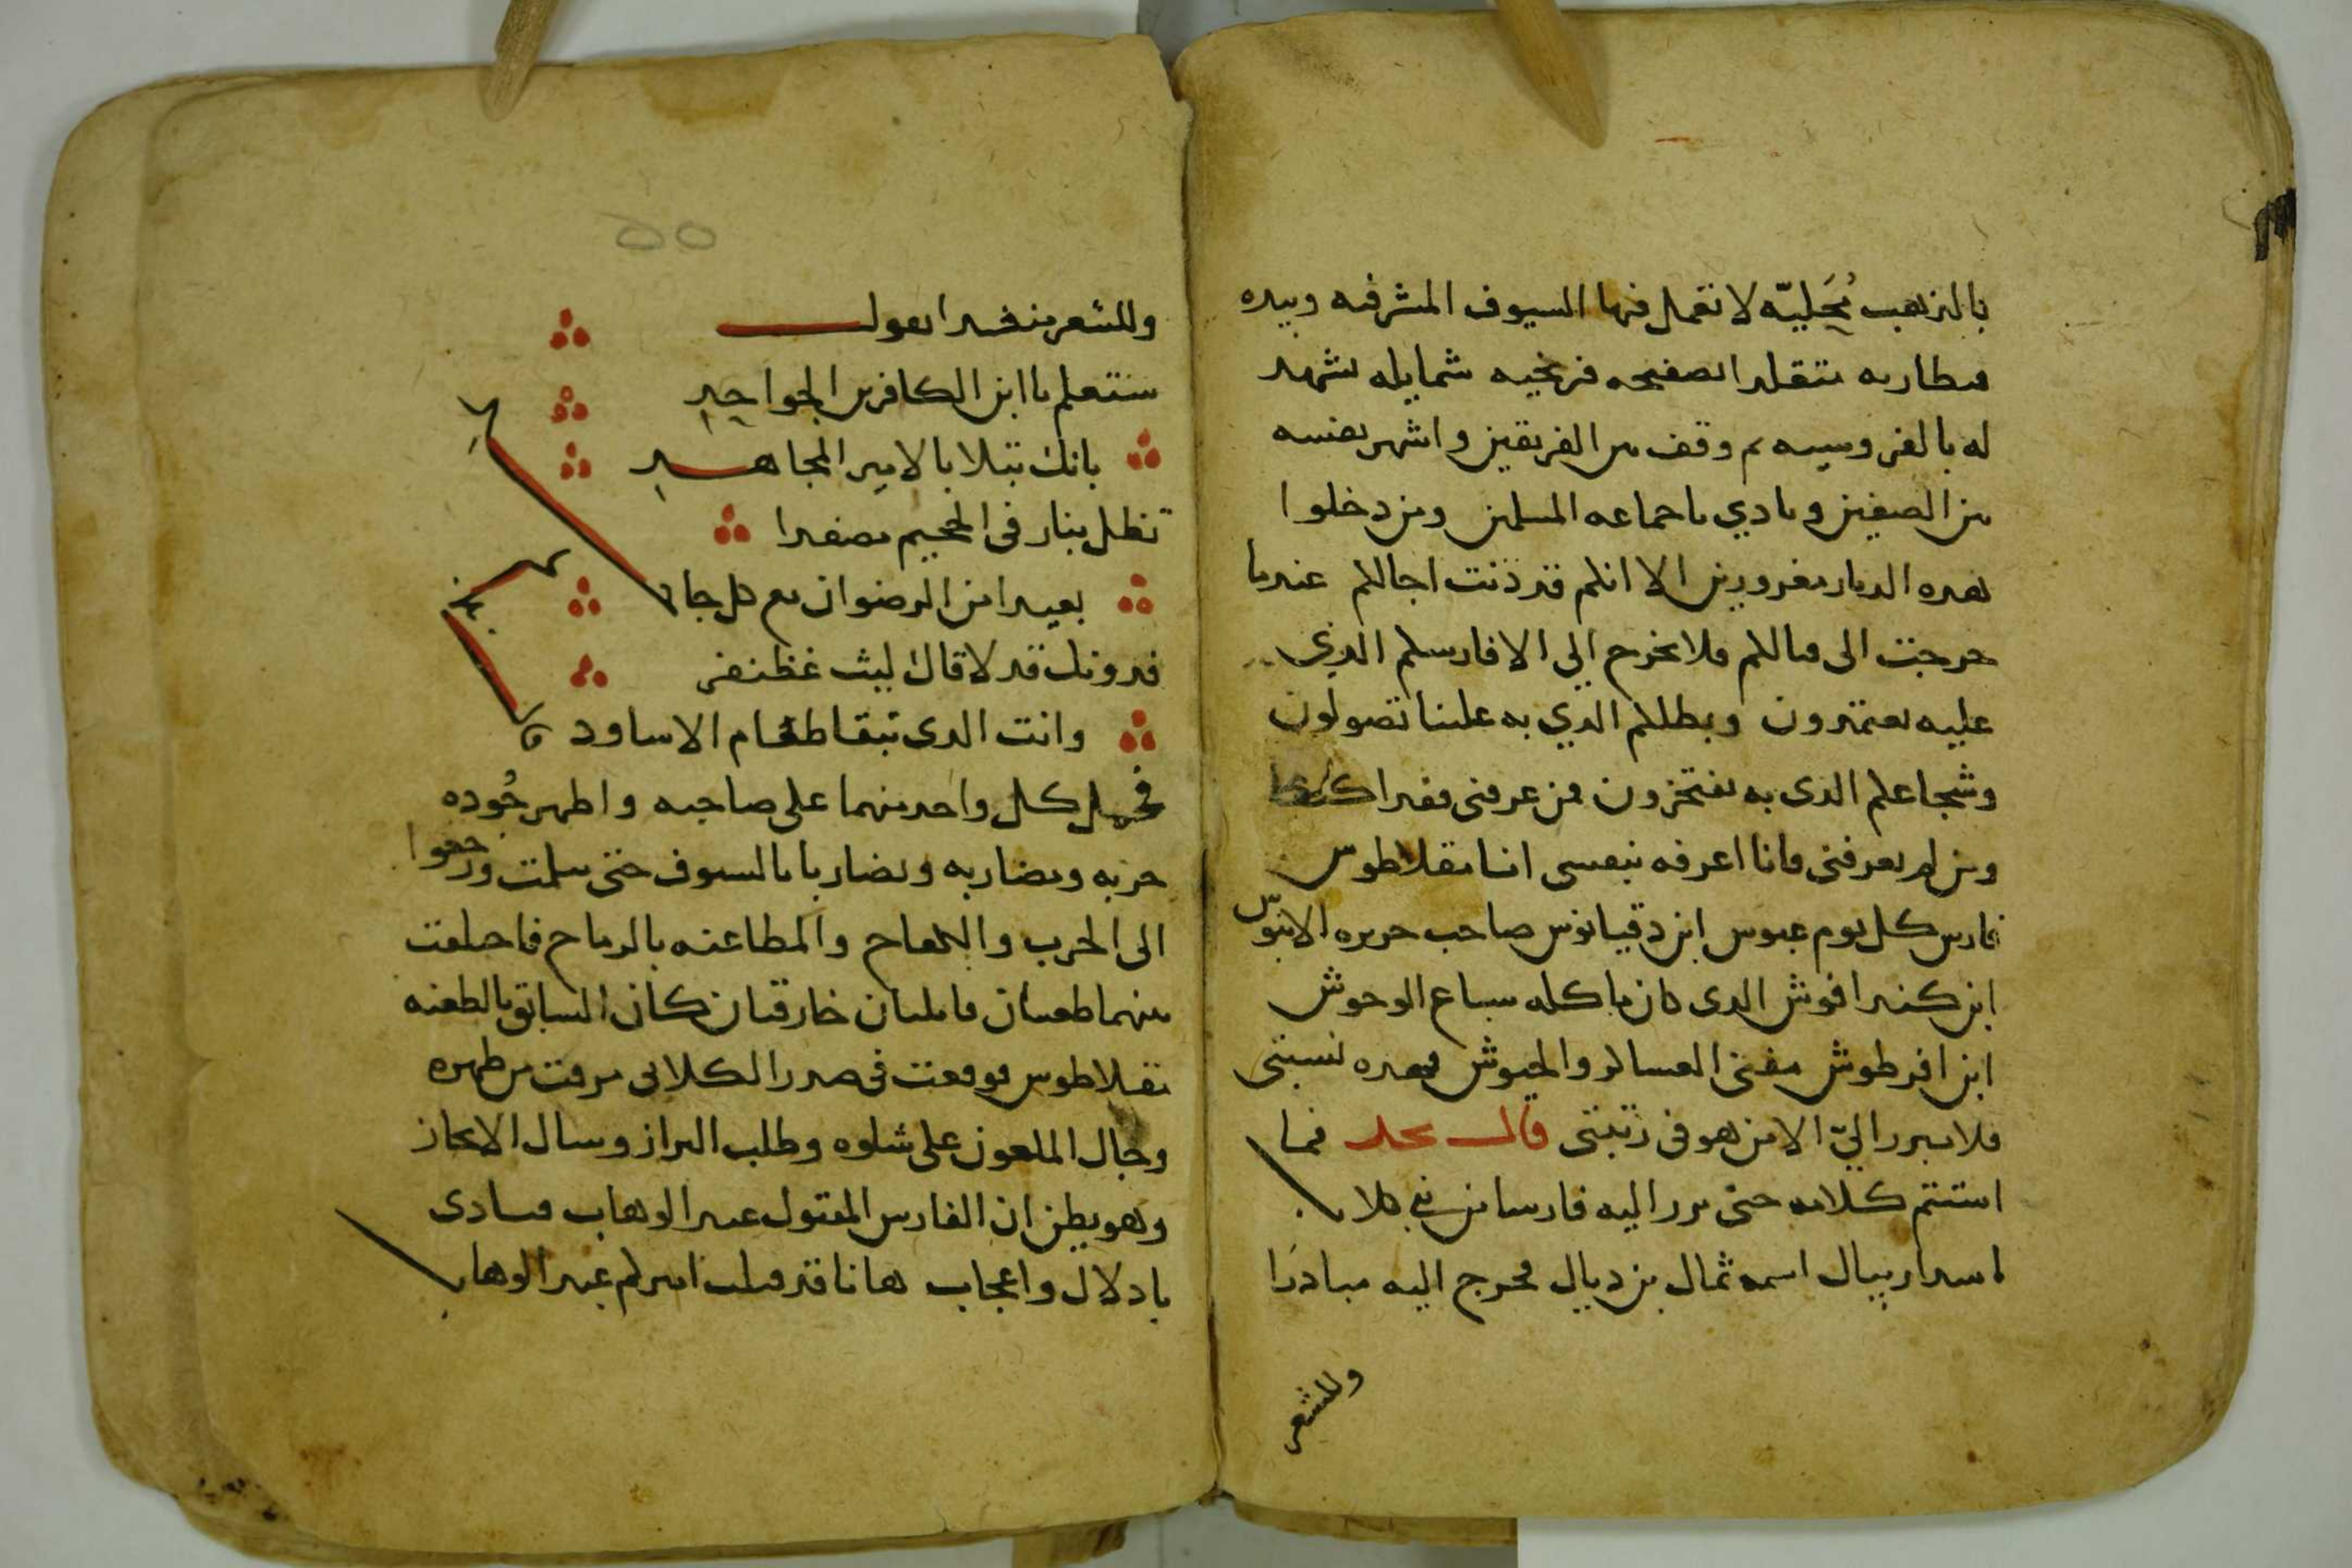 بالذهب مُجَليّه لا تعمل فيها السيوف المشرفيه وبيده
قنطاريه متقلد بصفيحه فرنجيه شمايله تشهد
له بالفروسيه ثم وقف بين الفريقين واشهر نفسه
بين الصفين ونادي يا جماعه المسلمين ومن دخلوا
هده الديار مغرورين الا انكم قد دنت اجالكم عندما
خرجت الى قتالكم فلا يخرج الي الا فارسكم الذي
عليه تعتمدون وبطلكم الدي به علينا تصولون
وشجاعكم الدى به تفتخرون فمن عرفنى فقد اكتفا
ومن لم يعرفنى فانا اعرفه بنفسى انا نقلاطوس
فارس كل يوم عبوس ابن دقيانوس صاحب جزيره الابنوس
ابن كندافوش الدى كان ياكله سباع الوحوش
ابن افرطوش مفنى العساكر والجيوش فهده نسبتى
فلا يبرز اليّ الا من هو فى رتبتى قال نجد فما
استتم كلامه حتى برز اليه فارسا من بني كلاب
اسدا ريبال اسمه ثمال بن ديال فخرج اليه مبادرًا
وللشعر
٥٥
وللشعر منشدا يقول
ستعلم يا ابن الكافرين الجواحدِ
بانك تبلا بالامير المجاهدِ
تظل بنار فى الجحيم مصفدا
بعيدا من الرضوان مع كل جاحد
فدونك قد لاقاك ليث غظنفر
وانت الدى تبقا طعام الاساود
فحمل كل واحد منهما على صاحبه واظهر جُوده
حربه ومضاربه وتضاربا بالسيوف حتى تثلمت ورجعوا
الى الحرب والكفاح والمطاعنه بالرماح فاختلفت
بينهما طعنتان قاتلتان خارقتان كان السابق بالطعنه
نقلاطوس فوقعت فى صدر الكلابى مرقت من ظهره
وجال الملعون على شلوه وطلب البراز وسال الانجاز
وهو يظن ان الفارس المقتول عبد الوهاب فنادى
بادلال واعجاب ها انا قد قتلت اميركم عبد الوهاب